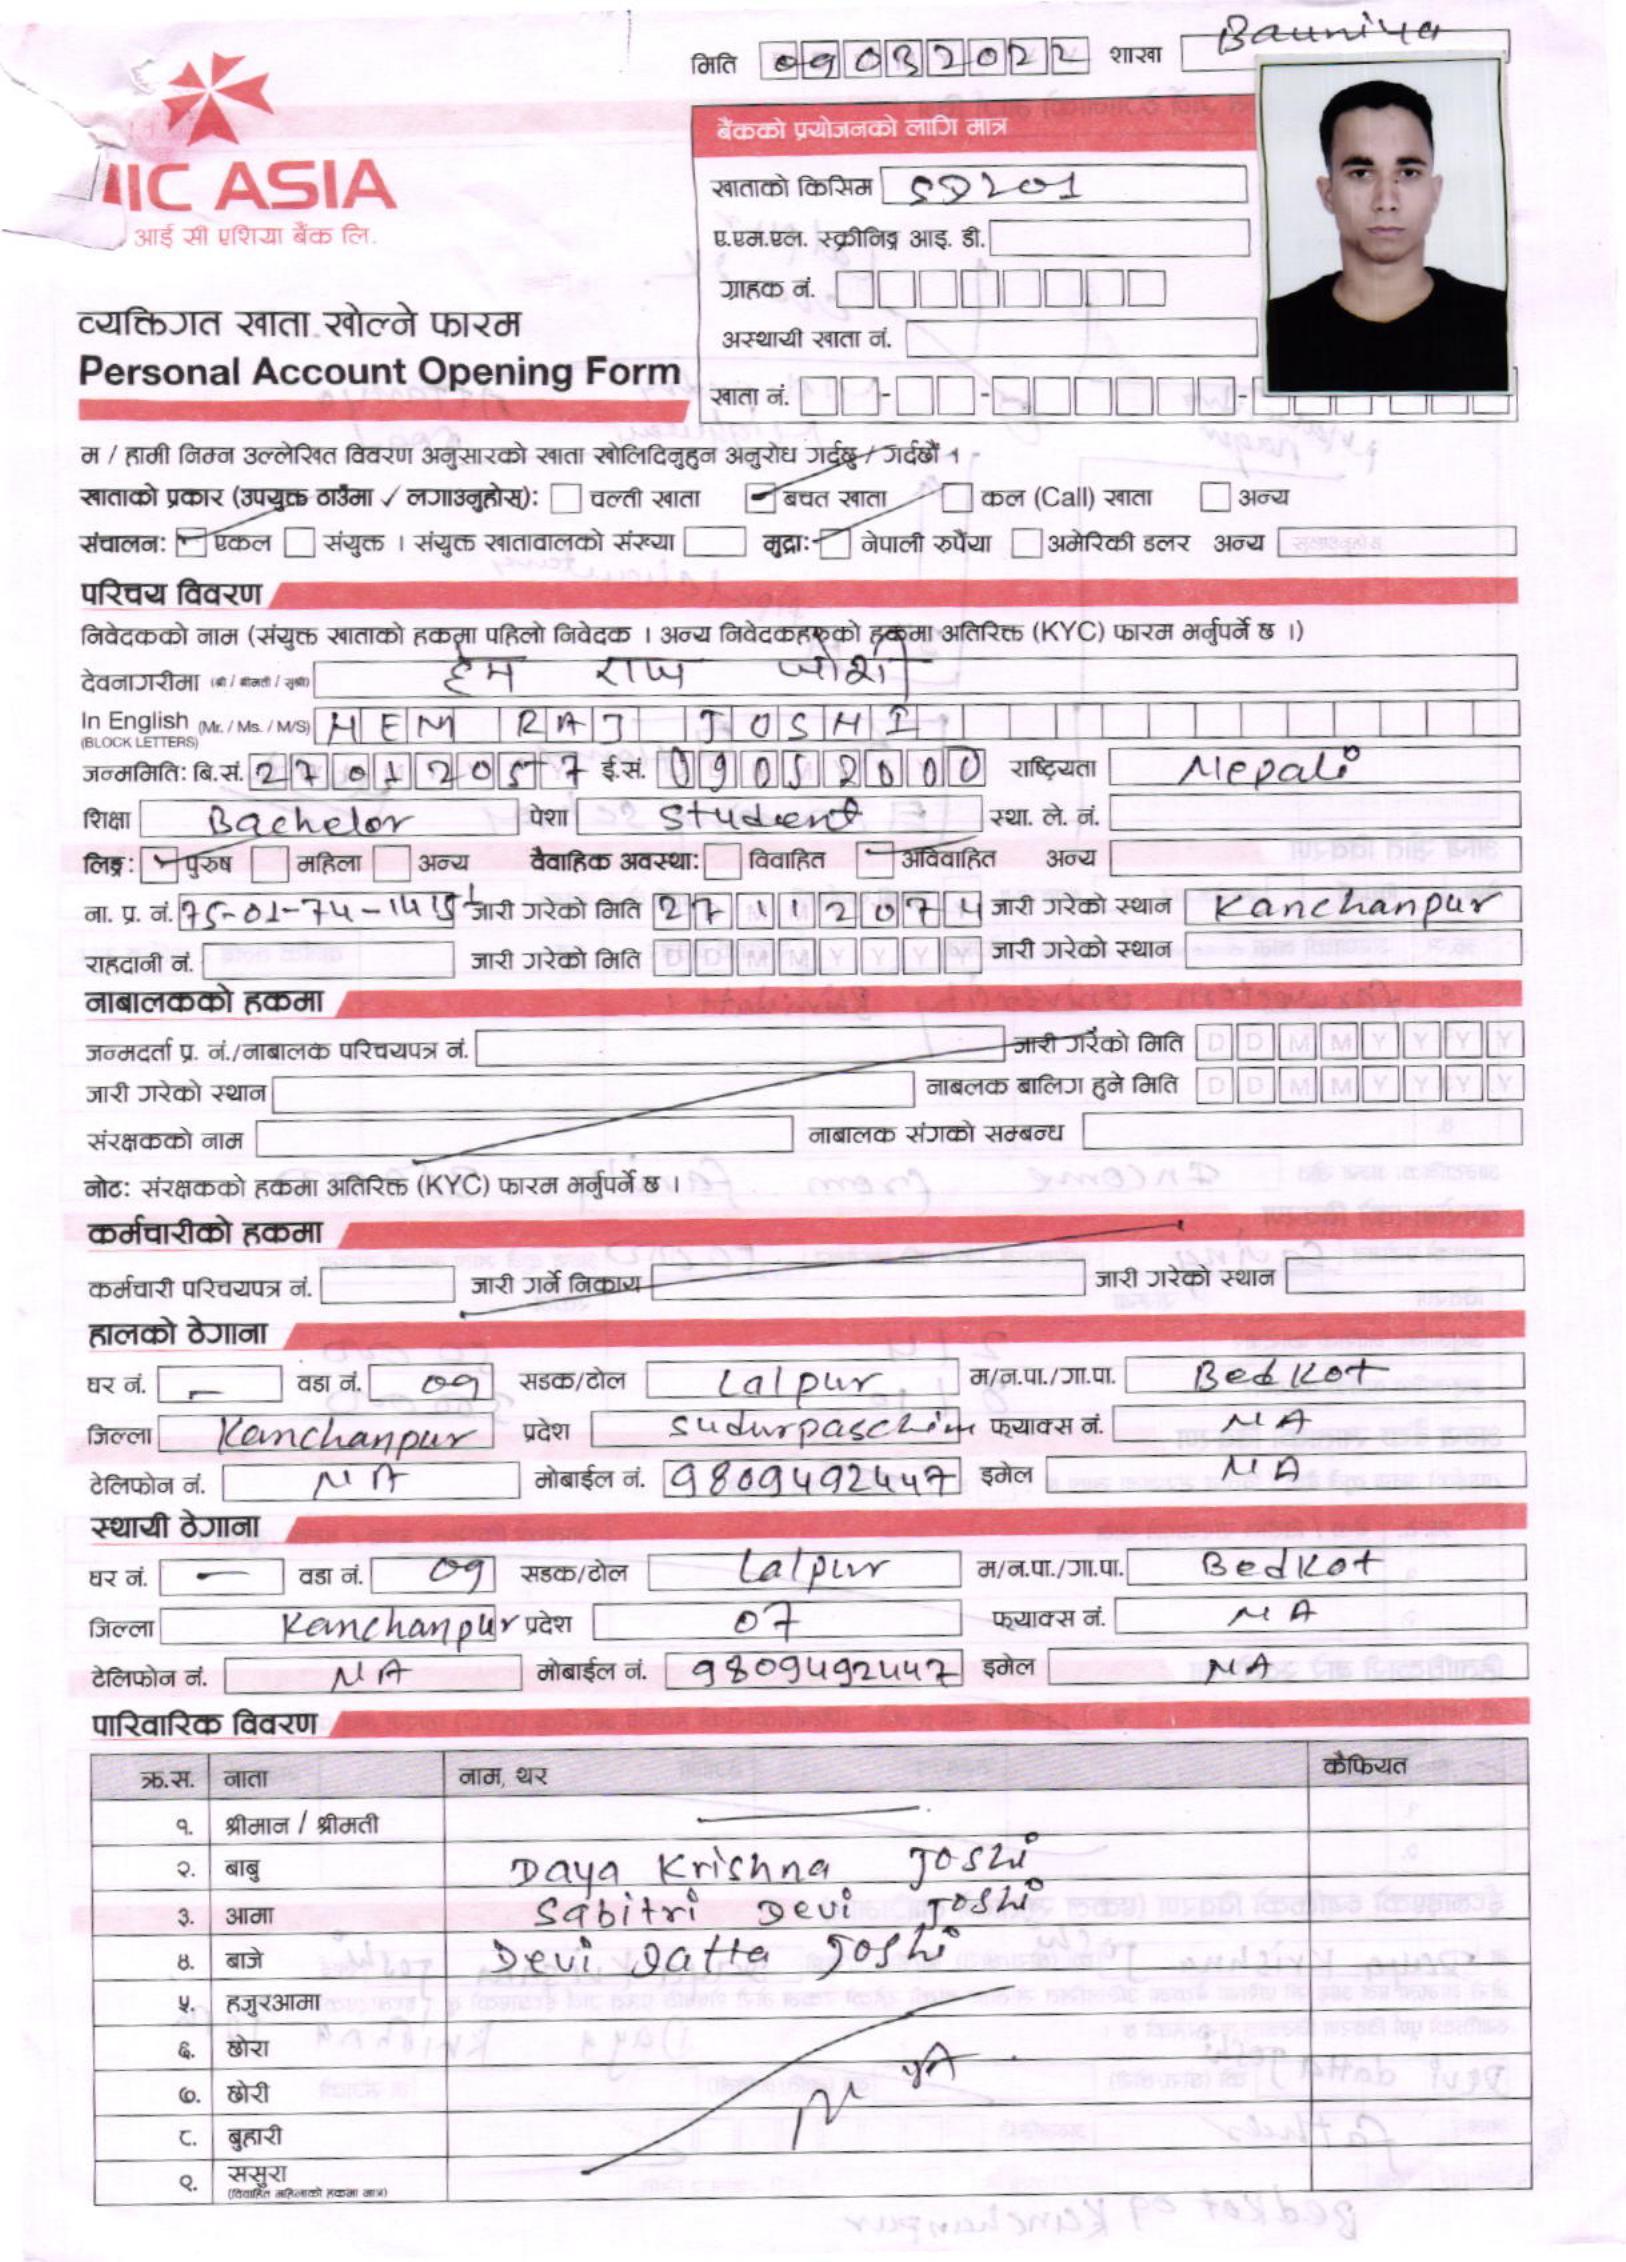 मिति 09032022 शाखा Bauniya
IIC ASIA
आई सी एशिया बैंक लि.
बैंकको प्रयोजनको लागि मात्र
खाताको किसिम SD201
ए.एम.एल. स्क्रीनिङ्ग आइ. डी.
ग्राहक नं.
अस्थायी खाता नं.
खाता नं. - - -
व्यक्तिगत खाता खोल्ने फारम
Personal Account Opening Form
म / हामी निम्न उल्लेखित विवरण अनुसारको खाता खोलिदिनुहुन अनुरोध गर्दछु / गर्दछौं ।
खाताको प्रकार (उपयुक्त ठाउँमा ✓ लगाउनुहोस्): चल्ती खाता बचत खाता कल (Call) खाता अन्य
संचालन: एकल संयुक्त । संयुक्त खातावालको संख्या मुद्रा: नेपाली रुपैंया अमेरिकी डलर अन्य
परिचय विवरण
निवेदकको नाम (संयुक्त खाताको हकमा पहिलो निवेदक । अन्य निवेदकहरुको हकमा अतिरिक्त (KYC) फारम भर्नुपर्ने छ ।)
देवनागरीमा (श्री / श्रीमती / सुश्री) हेम राज जोशी
In English (Mr. / Ms. / M/S) HEM RAJ JOSHI
(BLOCK LETTERS)
जन्ममिति: बि.सं. 27012057 ई.सं. 09052000 राष्ट्रियता Nepali
शिक्षा Bachelor पेशा Student स्था. ले. नं.
लिङ्ग: पुरुष महिला अन्य वैवाहिक अवस्था: विवाहित अविवाहित अन्य
ना. प्र. नं. 75-01-74-1415 जारी गरेको मिति 27112074 जारी गरेको स्थान Kanchanpur
राहदानी नं. जारी गरेको मिति जारी गरेको स्थान
नाबालकको हकमा
जन्मदर्ता प्र. नं./नाबालक परिचयपत्र नं. जारी गरेको मिति D D M M Y Y Y Y
जारी गरेको स्थान नाबलक बालिग हुने मिति D D M M Y Y Y Y
संरक्षकको नाम नाबालक संगको सम्बन्ध
नोट: संरक्षकको हकमा अतिरिक्त (KYC) फारम भर्नुपर्ने छ ।
कर्मचारीको हकमा
कर्मचारी परिचयपत्र नं. जारी गर्ने निकाय जारी गरेको स्थान
हालको ठेगाना
घर नं. - वडा नं. 09 सडक/टोल Lalpur म/न.पा./गा.पा. Bedkot
जिल्ला Kanchanpur प्रदेश Sudurpaschim फ्याक्स नं. NA
टेलिफोन नं. NA मोबाईल नं. 9809492447 इमेल NA
स्थायी ठेगाना
घर नं. - वडा नं. 09 सडक/टोल Lalpur म/न.पा./गा.पा. Bedkot
जिल्ला Kanchanpur प्रदेश 07 फ्याक्स नं. NA
टेलिफोन नं. NA मोबाईल नं. 9809492447 इमेल NA
पारिवारिक विवरण
क्र.स. नाता नाम, थर कैफियत
१. श्रीमान / श्रीमती
२. बाबु Daya Krishna Joshi
३. आमा Sabitri Devi Joshi
४. बाजे Devi Datta Joshi
५. हजुरआमा
६. छोरा
७. छोरी NA
८. बुहारी
९. ससुरा
(विवाहित महिलाको हकमा मात्र)